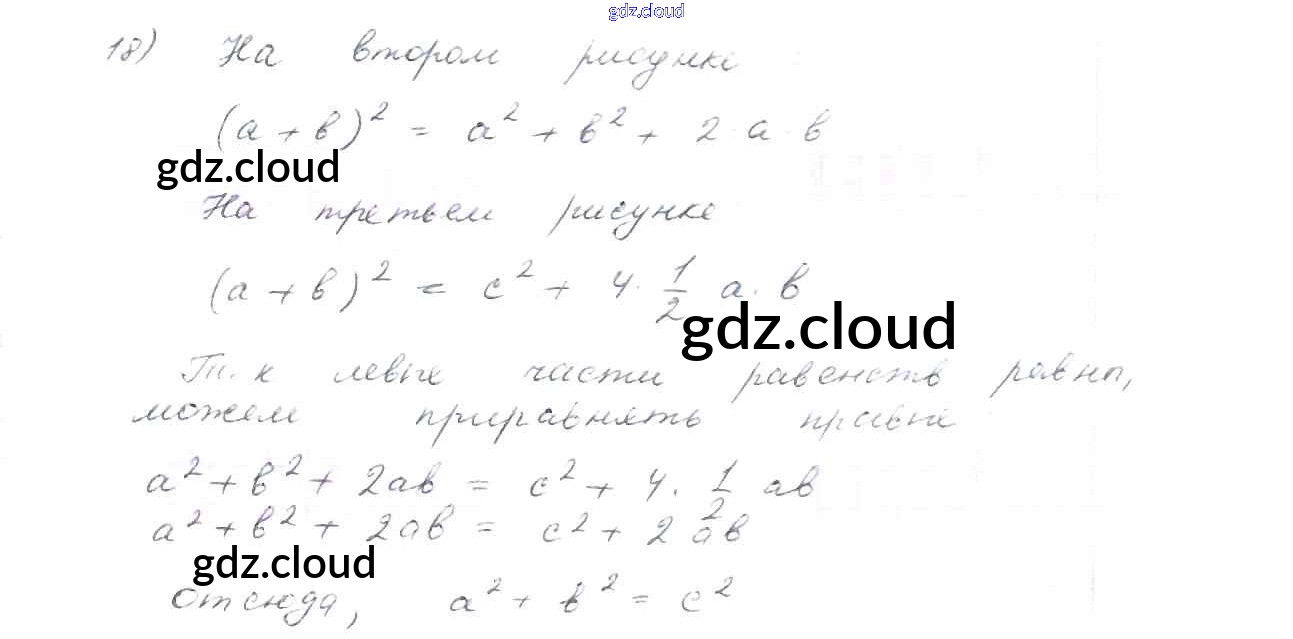 gdz.cloud
18) На втором рисунке
(а + в)² = а² + в² + 2·а·в
gdz.cloud
На третьем рисунке
(а + в)² = с² + 4·1/2 а·в
gdz.cloud
Т.к левые части равенств равны,
можем приравнять правые
а² + в² + 2ав = с² + 4·1/2 ав
а² + в² + 2ав = с² + 2ав
gdz.cloud
Отсюда, а² + в² = с²